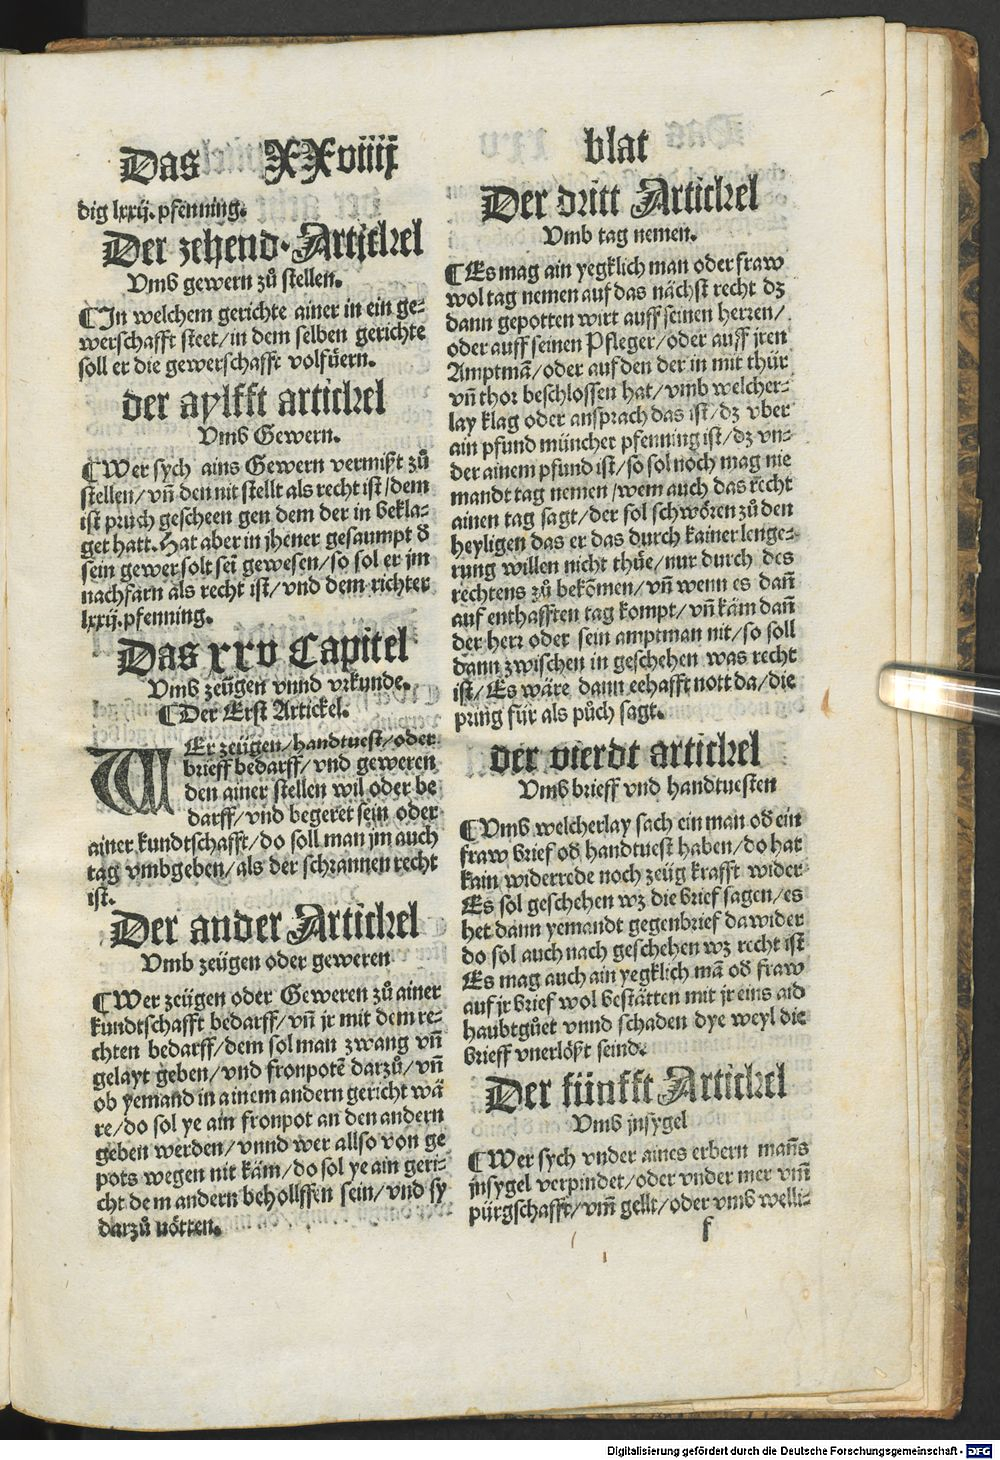 Das XXviiij blat
dig lxxij. pfenning.
Der zehend. Artickel
Vmb gewern zů stellen.
¶In welchem gerichte ainer in ein ge-
werschafft steet/in dem selben gerichte
soll er die gewerschafft volfüern.
der aylfft artickel
Vmb Gewern.
¶Wer sych ains Gewern vermißt zů
stellen/vn̄ den nit stellt als recht ist/dem
ist pruch gescheen gen dem der in bekla-
get hatt. Hat aber in jhener gesaumpt d̕
sein gewer solt sei gewesen/so sol er jm
nachfarn als recht ist/vnd dem richter
lxxij. pfenning.
Das xxv Capitel
Vmb zeügen vnnd vrkunde.
¶Der Erst Artickel.
WEr zeügen/handtuest/oder
brieff bedarff/vnd geweren
den ainer stellen wil oder be
darff/vnd begeret sein oder
ainer kundtschafft/do soll man jm auch
tag vmbgeben/als der schrannen recht
ist.
Der ander Artickel
Vmb zeügen oder geweren
¶Wer zeügen oder Geweren zů ainer
kundtschafft bedarff/vn̄ jr mit dem re-
chten bedarff/dem sol man zwang vn̄
gelayt geben/vnd fronpotē darzů/vn̄
ob yemand in ainem andern gericht wä
re/do sol ye ain fronpot an den andern
geben werden/vnnd wer allso von ge
pots wegen nit käm/do sol ye ain geri-
cht dem andern behollffen sein/vnd sy
darzů nötten.
Der dritt Artickel
Vmb tag nemen.
¶Es mag ain yegklich man oder fraw
wol tag nemen auf das nächst recht dz
dann gepotten wirt auff seinen herren/
oder auff seinen Pfleger/oder auff jren
Amptmā/oder auf den der in mit thür
vn̄ thor beschlossen hat/vmb welcher-
lay klag oder ansprach das ist/dz vber
ain pfund müncher pfenning ist/dz vn-
der ainem pfund ist/so sol noch mag nie
mandt tag nemen/wem auch das recht
ainen tag sagt/der sol schwören zů den
heyligen das er das durch kainer lenge-
rung willen nicht thüe/nur durch des
rechtens zů bekōmen/vn̄ wenn es dan̄
auf enthafften tag kompt/vn̄ käm dan̄
der herr oder sein amptman nit/so soll
dann zwischen in geschehen was recht
ist/Es wäre dann eehafft nott da/die
pring für als půch sagt.
der vierdt artickel
Vmb brieff vnd handtuesten
¶Vmb welcherlay sach ein man od̕ ein
fraw brief od̕ handtuest haben/do hat
kain widerrede noch zeüg krafft wider
Es sol geschehen wz die brief sagen/es
het dann yemandt gegenbrief da wider
do sol auch nach geschehen wz recht ist
Es mag auch ain yegklich mā od̕ fraw
auf jr brief wol bestätten mit jr eins aid
haubtgůet vnnd schaden dye weyl die
brieff vnerlößt seind.
Der fünfft Artickel
Vmb jnsygel
¶Wer sych vnder aines erbern man̄s
jnsygel verpindet/oder vnder mer vm̄
pürgschafft/vm̄ gellt/oder vmb welli-
f
Digitalisierung gefördert durch die Deutsche Forschungsgemeinschaft - DFG